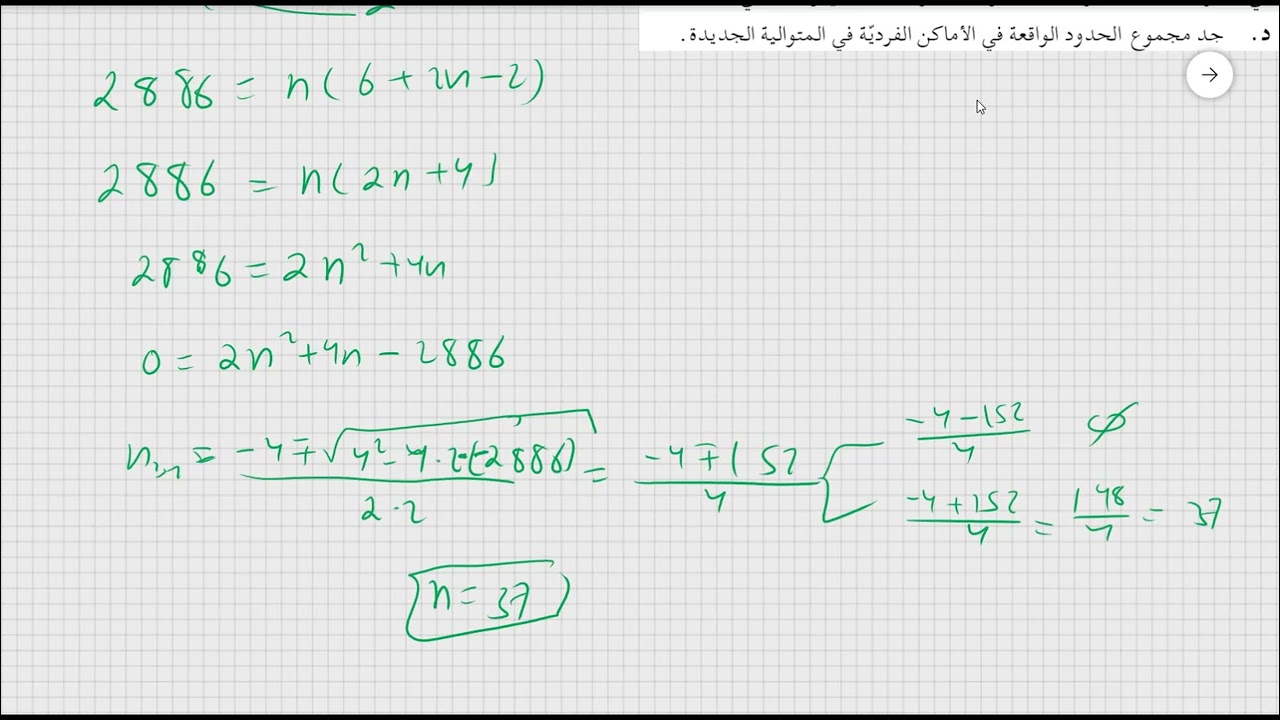 د. جد مجموع الحدود الواقعة في الأماكن الفرديّة في المتوالية الجديدة.
2886 = n(6+2n-2)
2886 = n(2n+4)
2886 = 2n²+4n
0 = 2n²+4n-2886
= -4∓√4²-4·2·(-2886) / 2·2 = -4∓152 / 4
-4-152 / 4 ∅
-4+152 / 4 = 148 / 4 = 37
n=37